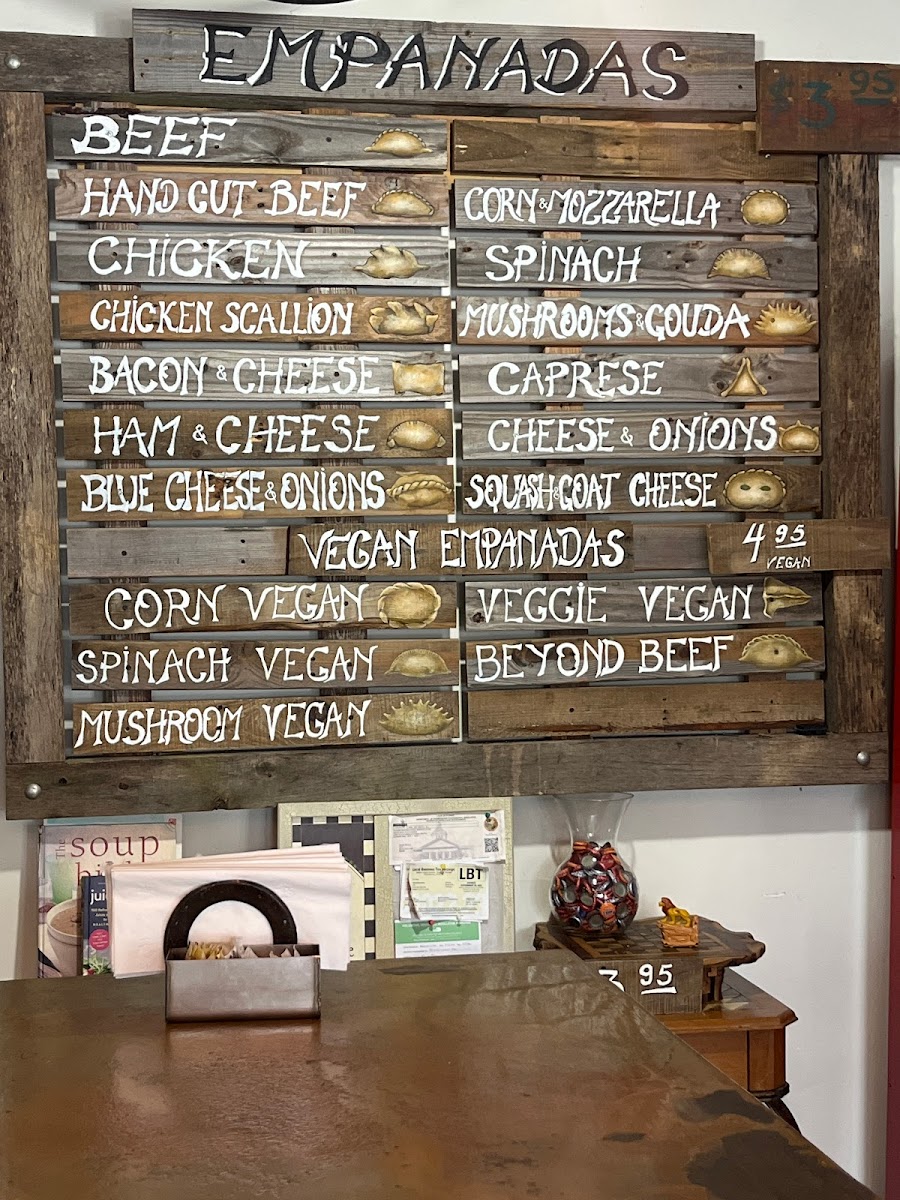 EMPANADAS
$3 95
BEEF
HAND CUT BEEF
CHICKEN
CHICKEN SCALLION
BACON & CHEESE
HAM & CHEESE
BLUE CHEESE & ONIONS
CORN & MOZZARELLA
SPINACH
MUSHROOMS & GOUDA
CAPRESE
CHEESE & ONIONS
SQUASH & GOAT CHEESE
VEGAN EMPANADAS
4 95
VEGAN
CORN VEGAN
SPINACH VEGAN
MUSHROOM VEGAN
VEGGIE VEGAN
BEYOND BEEF
The
soup
LBT
3 95